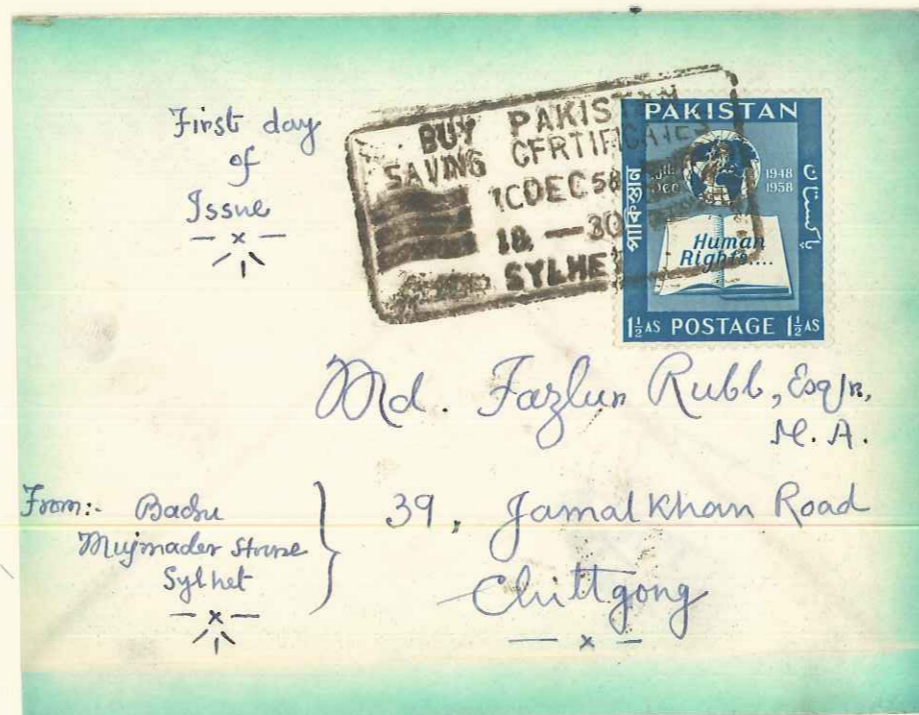 First day
of
Issue
BUY PAKISTAN
SAVING CERTIFICATES
10 DEC 58
18 — 30
SYLHET
PAKISTAN
10th
DEC
1948
1958
পাকিস্তান
پاکستان
Human
Rights....
1½ AS POSTAGE 1½ AS
Md. Fazlur Rubb, Esqr,
M. A.
39, Jamal Khan Road
Chittgong
From:- Bachu
Mujmader
Sylhet